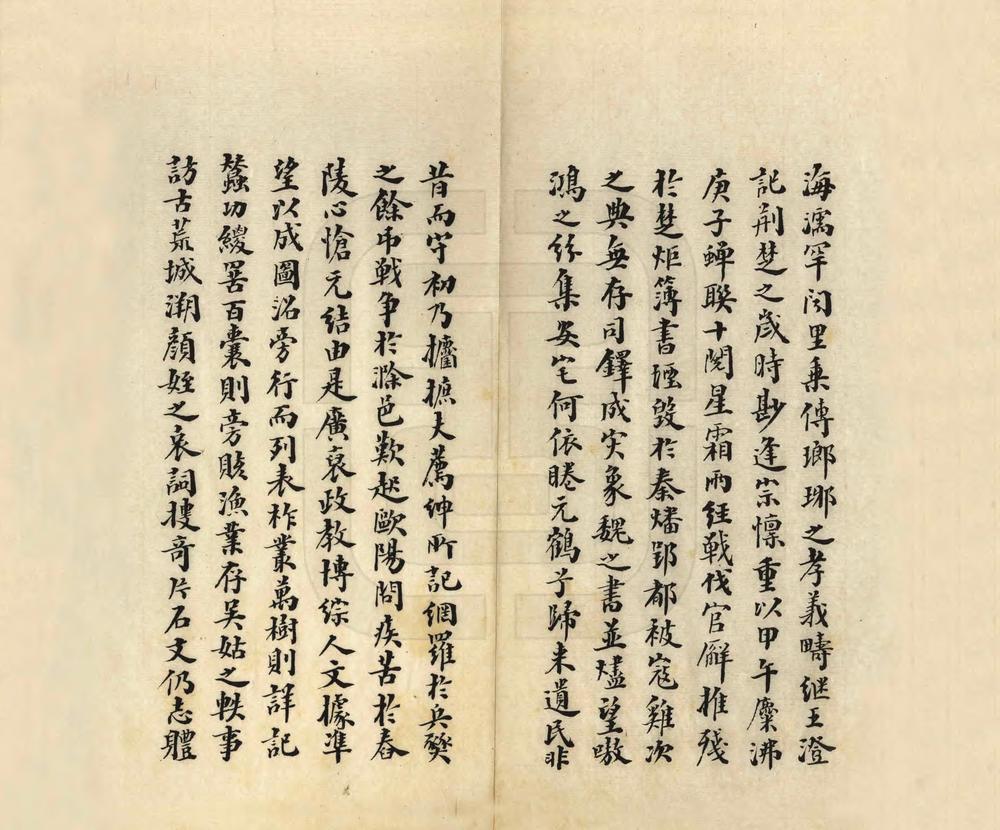 海濡罕闵里乗傳瑯琊之孝義疇继王澄
記荆楚之歲時尠逢宗懍重以甲午糜沸
庚子蟬联十閱星霜兩经戰伐官廨摧殘
於楚炬簿書堙毁於秦燔郢都被寇雞次
之典無存司鐸成灾象魏之書並燼望嗷
鴻之終集安宅何依睠元鶴兮歸来遺民非
昔而守初乃攟摭夫薦紳所記網羅於兵燹
之餘弔戰争於滁邑歎起歐陽問疾苦於舂
陵心愴元結由是廣裒政教博综人文據準
望以成圖沿旁行而列表柞叢萬樹則詳記
蠶功緵罟百囊則旁賅漁業存吴姑之軼事
訪古荒城溯顔姪之哀詞搜奇片石文仍志體